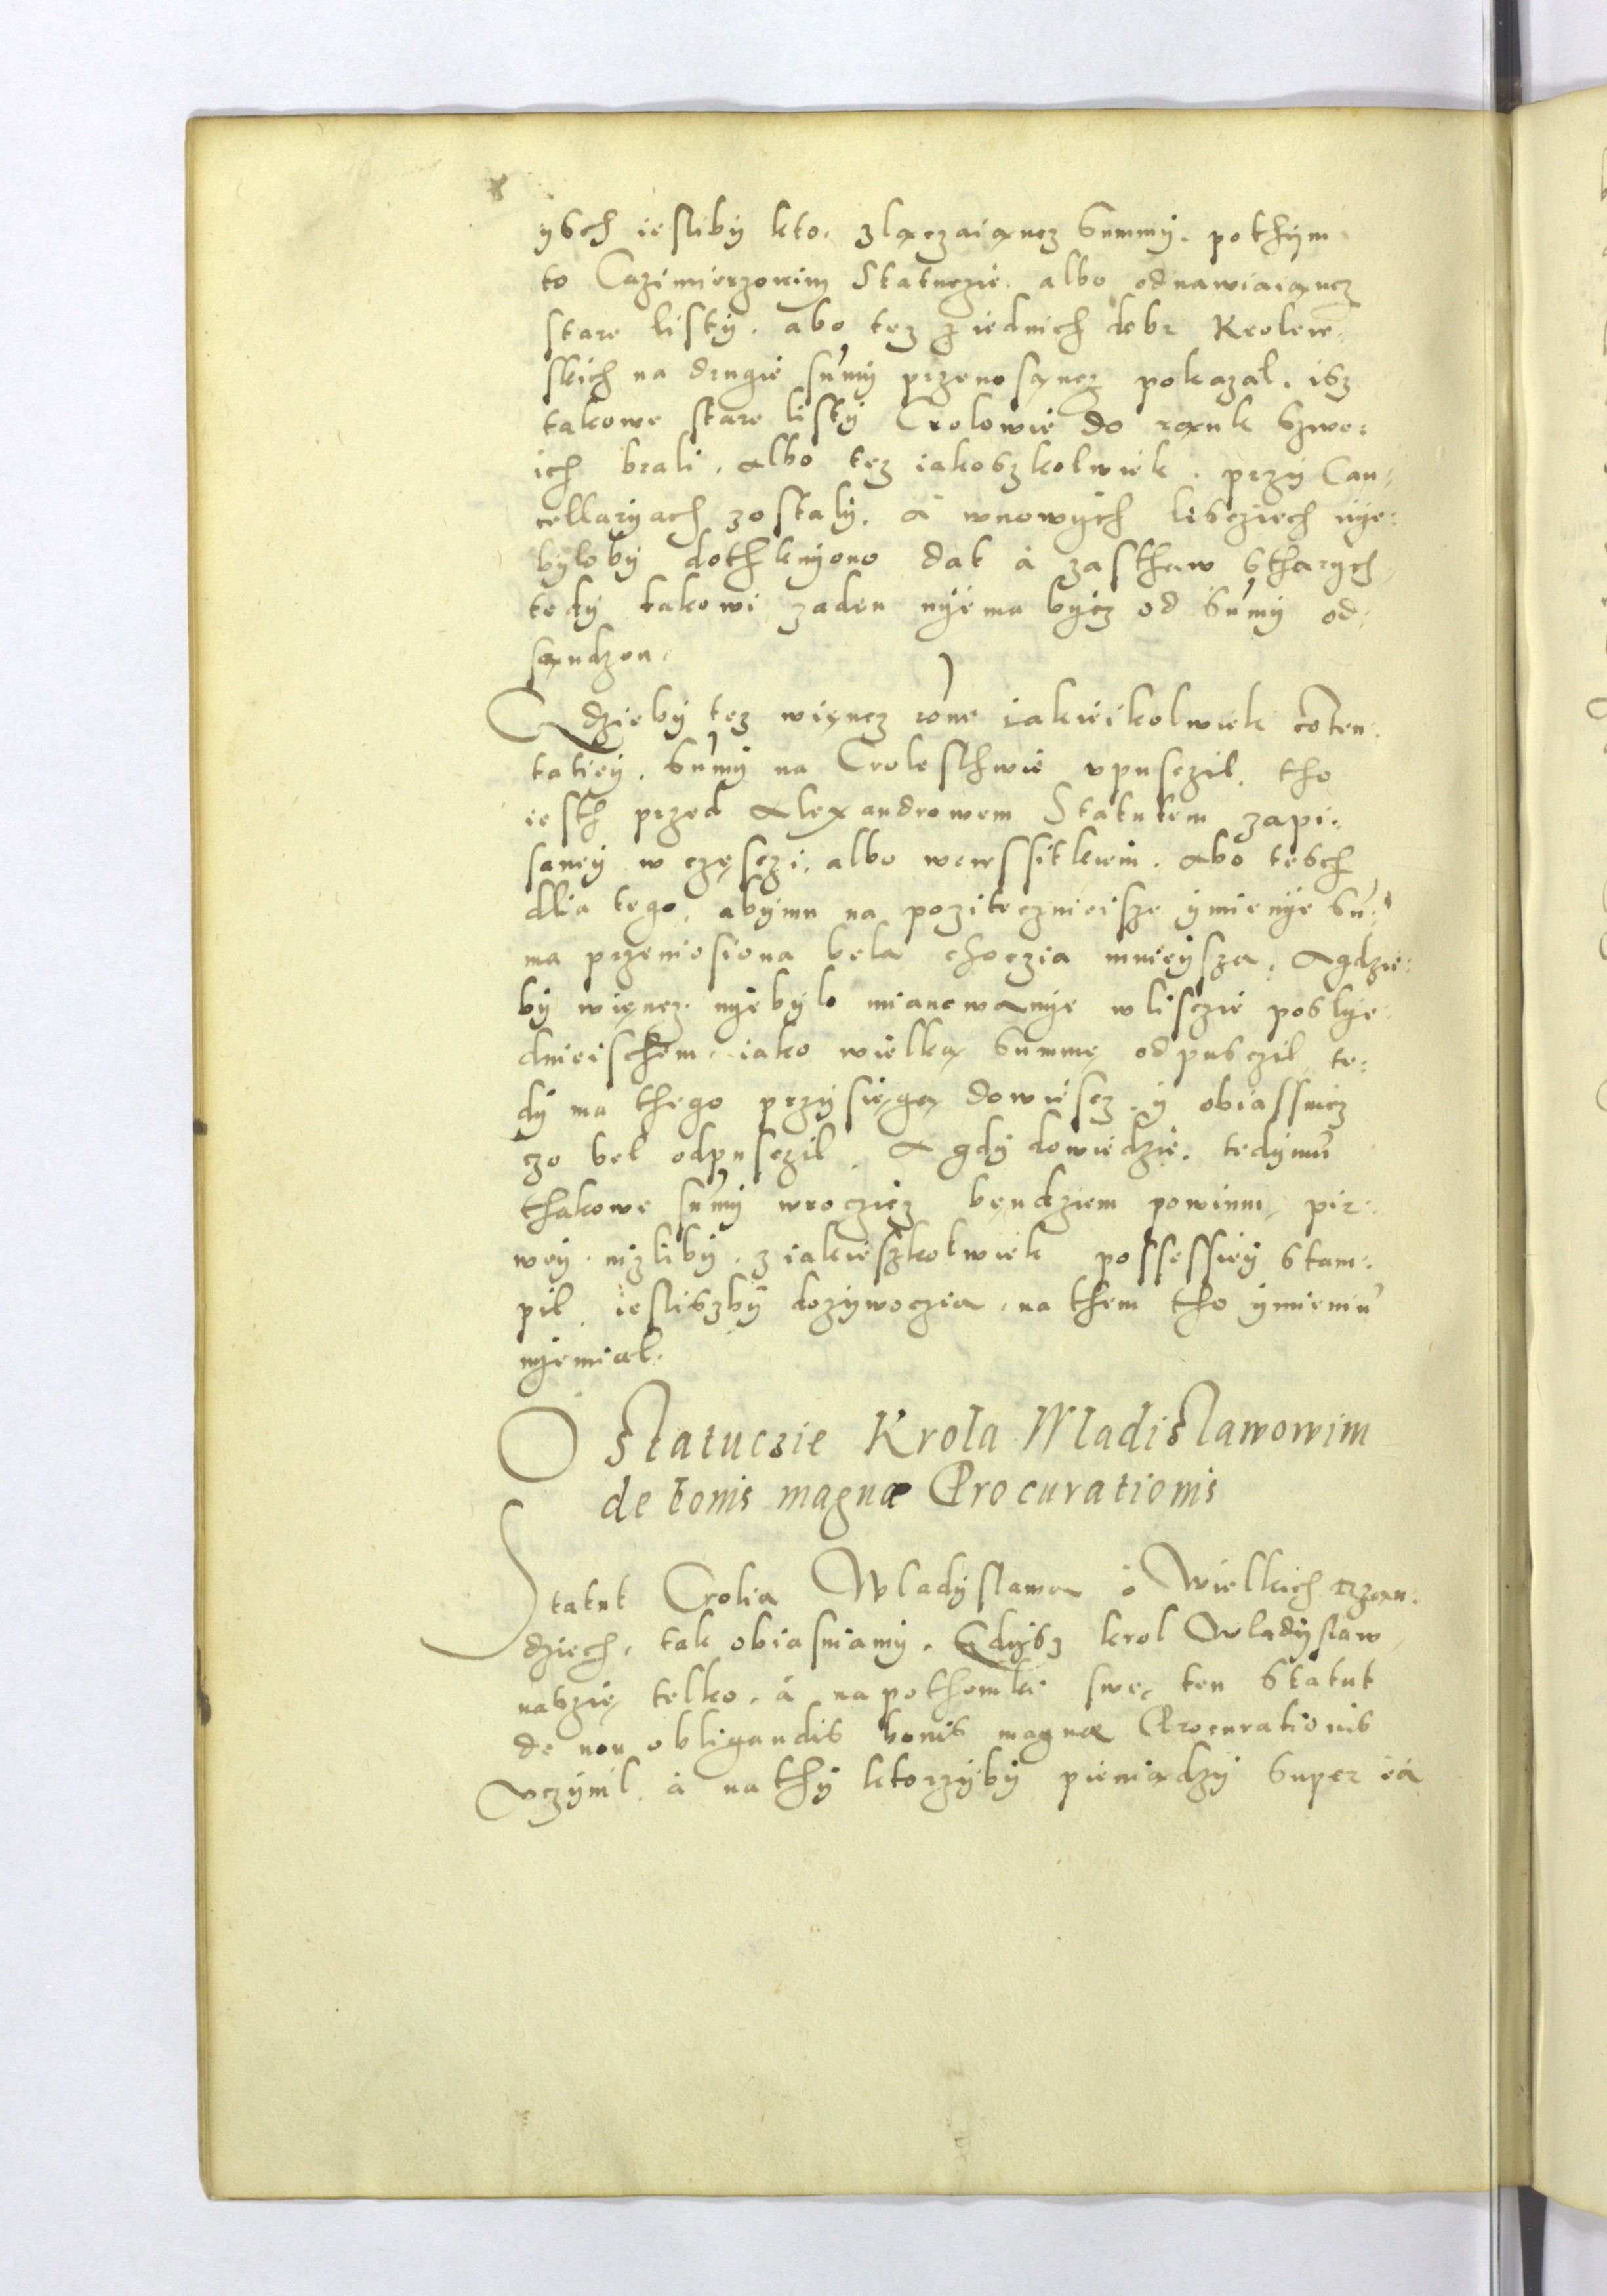 ysch iesliby kto. zlączaiąncz summy. pothym
to Cazimierzowim Statuczie. albo odnawiaiąncz
stare listy. abo tez z iednich dobr Krolew-
skich na drugie sumy przenosząncz pokazal. isz
takowe stare listy Crolowie do rąnk szwo-
ich brali. Albo tez iakoszkolwiek. przy Can-
cellaryach zostaly. á wnowych lisciech nye-
byloby dothknyono dat á zasthaw stharych,
tedy takowi zaden nyema bycz od sumy od-
sąndzon.
Gdzieby tez więncz rone iakieikolwiek conten-
tatiey. sumy na Crolesthwie upusczil. tho
iesth przed Alexandrowem Statutem zapi-
saney w częsczi. albo wewssitkiem. Abo tesch
dlia tego, abymu na pozitecznieisze ymienye su-
ma przeniosiona bela choczia mnieysza. Agdzie-
by więncz nyebylo mianowanye wlisczie poslye-
dnieischem. iako wielką summę odpusczil te-
dy ma thego przysięgą dowiescz. y obiassnicz
czo bel odpusczil. A gdy dowiedzie. tedymu
thakowe sumy wroczicz bendziem powinni, pir-
wey. nizliby. z iakieszkolwiek possessiey stam-
pil. iesliszby dozywoczia. na them tho ymieniu
nyemial.
O Statuczie Krola Wladislawowim
de bonis magnæ Procurationis
Statut Crolia Wladyslawa o Wielkich rząn-
dziech, tak obiasniamy. Gdysz krol Wladyslaw
naszię telko. á napothomki swe, ten Statut
de non obligandis bonis magnæ Procurationis
uczynil. á na thy ktorzyby pieniądzy super ea